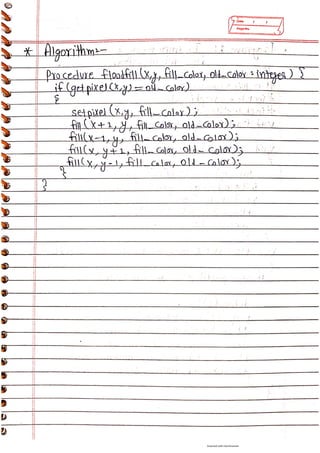 * Algorithm:-
Procedure floodfill (x,y, fill_color, old_color : integer) {
if (getpixel (x,y) = old_color)
{
setpixel (x,y, fill_color);
fill (x+1, y, fill_color, old_color);
fill(x-1, y, fill_color, old_color);
fill(x, y+1, fill_color, old_color);
fill(x, y-1, fill_color, old_color);
}
}